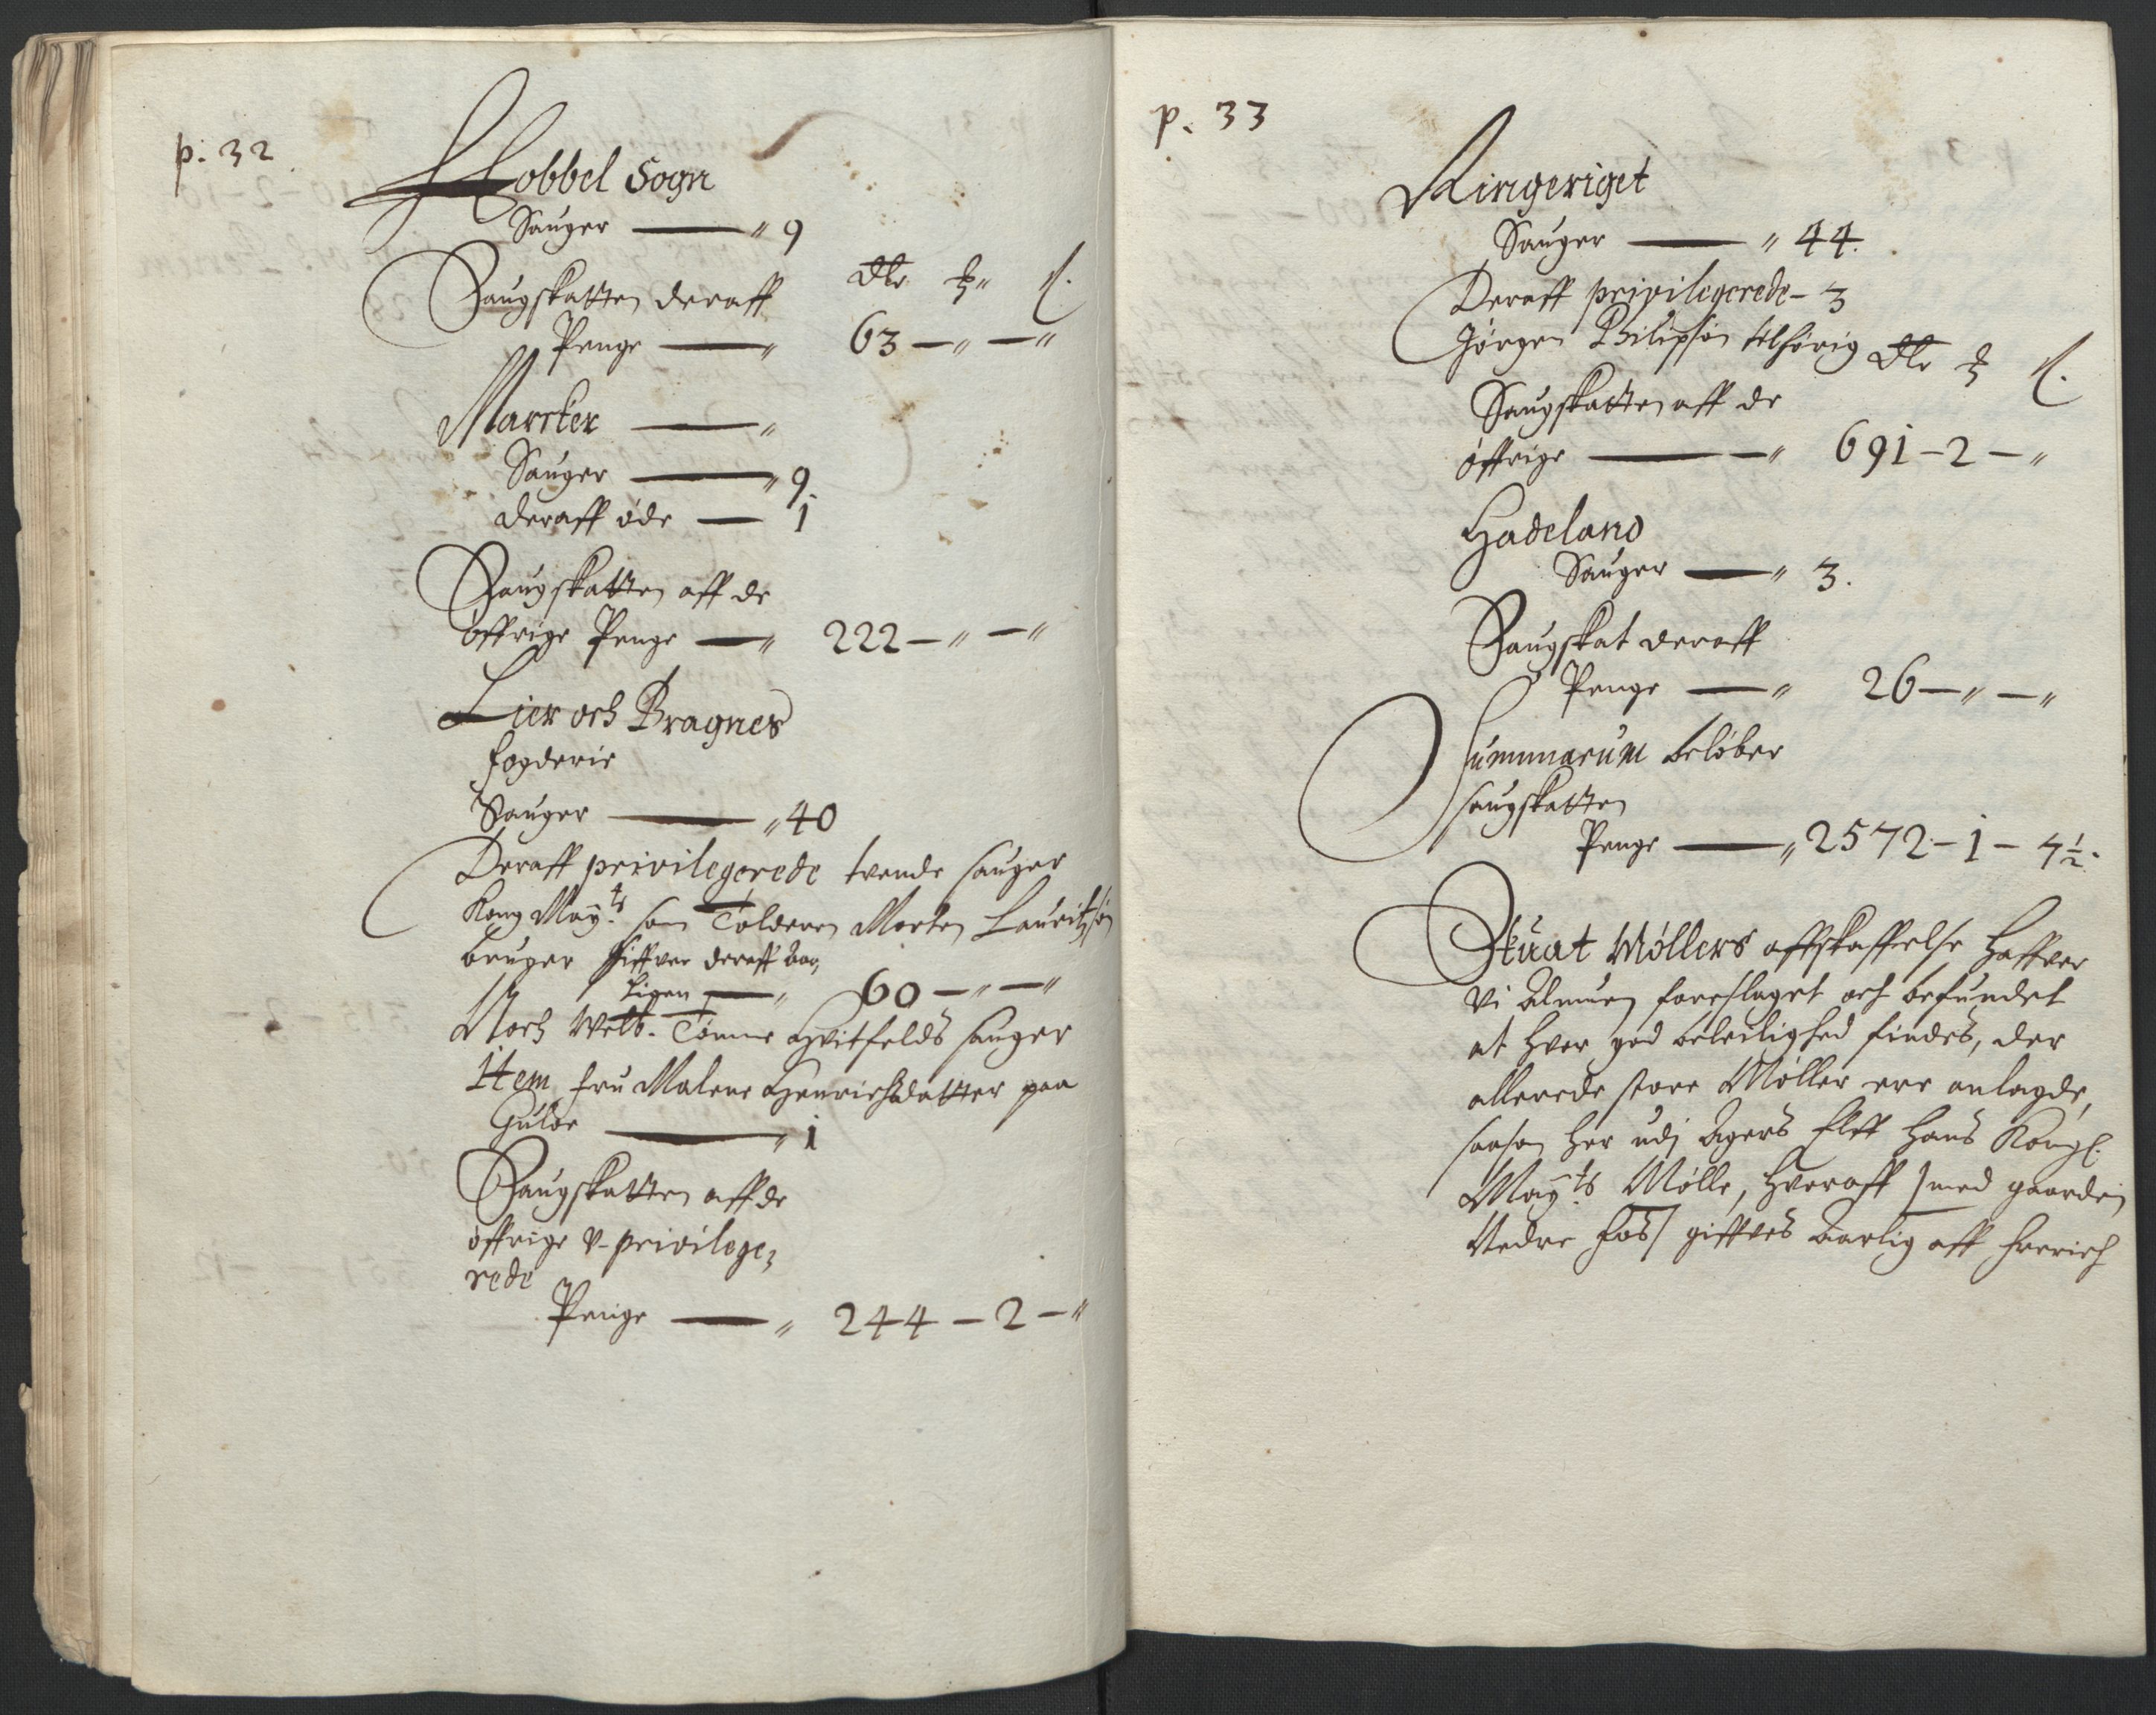 p. 32
Hobbel Sogn
Sauger — " 9
Saugskatten deraff Dlr ß
Penge — " 63 — " — "
Marcker — "
Sauger — " 9.
deraff øde — 1
Saugskatten aff de
øffrige Penge — " 222 — " — "
Lier och Bragnes
fogderie
Sauger — " 40
Deraff privilegerede tvende sauger
Kong Maÿ:ts som Tolderen Morten Lauritzøn
bruger Giffver deraff aar,
ligen — " 60 — " — "
Noch Welb. Tønne Hvitfelds sauger
Item fru Malene Henrichsdatter paa
— " 1
Saugskatten aff de
øffrige v-privilege,
rede
Penge — " 244 — 2 — "
p. 33
Ringeriget
Sauger — " 44.
Deraff privilegerede — 3
Jørgen Philipsøn tilhørig Dlr ß
Saugskatten aff de
øffrige — " 691 — 2 — "
Hadeland
Sauger — " 3.
Saugskat deraff
Penge — " 26 — " — "
Summarum beløber
saugskatten
Penge — " 2572 — 1 — 4½.
Skuat Møllers affskaffelse Haffver
vi Almuen foreslaget och befundet
at hvor god beleilighed findes, der
allerede store Møller ere anlagde,
saasom her udj Agers Elff Hans Kongl.
Maÿ:ts Mølle, hveraff / med gaarden
Nedre Fos / giffves Aarlig aff